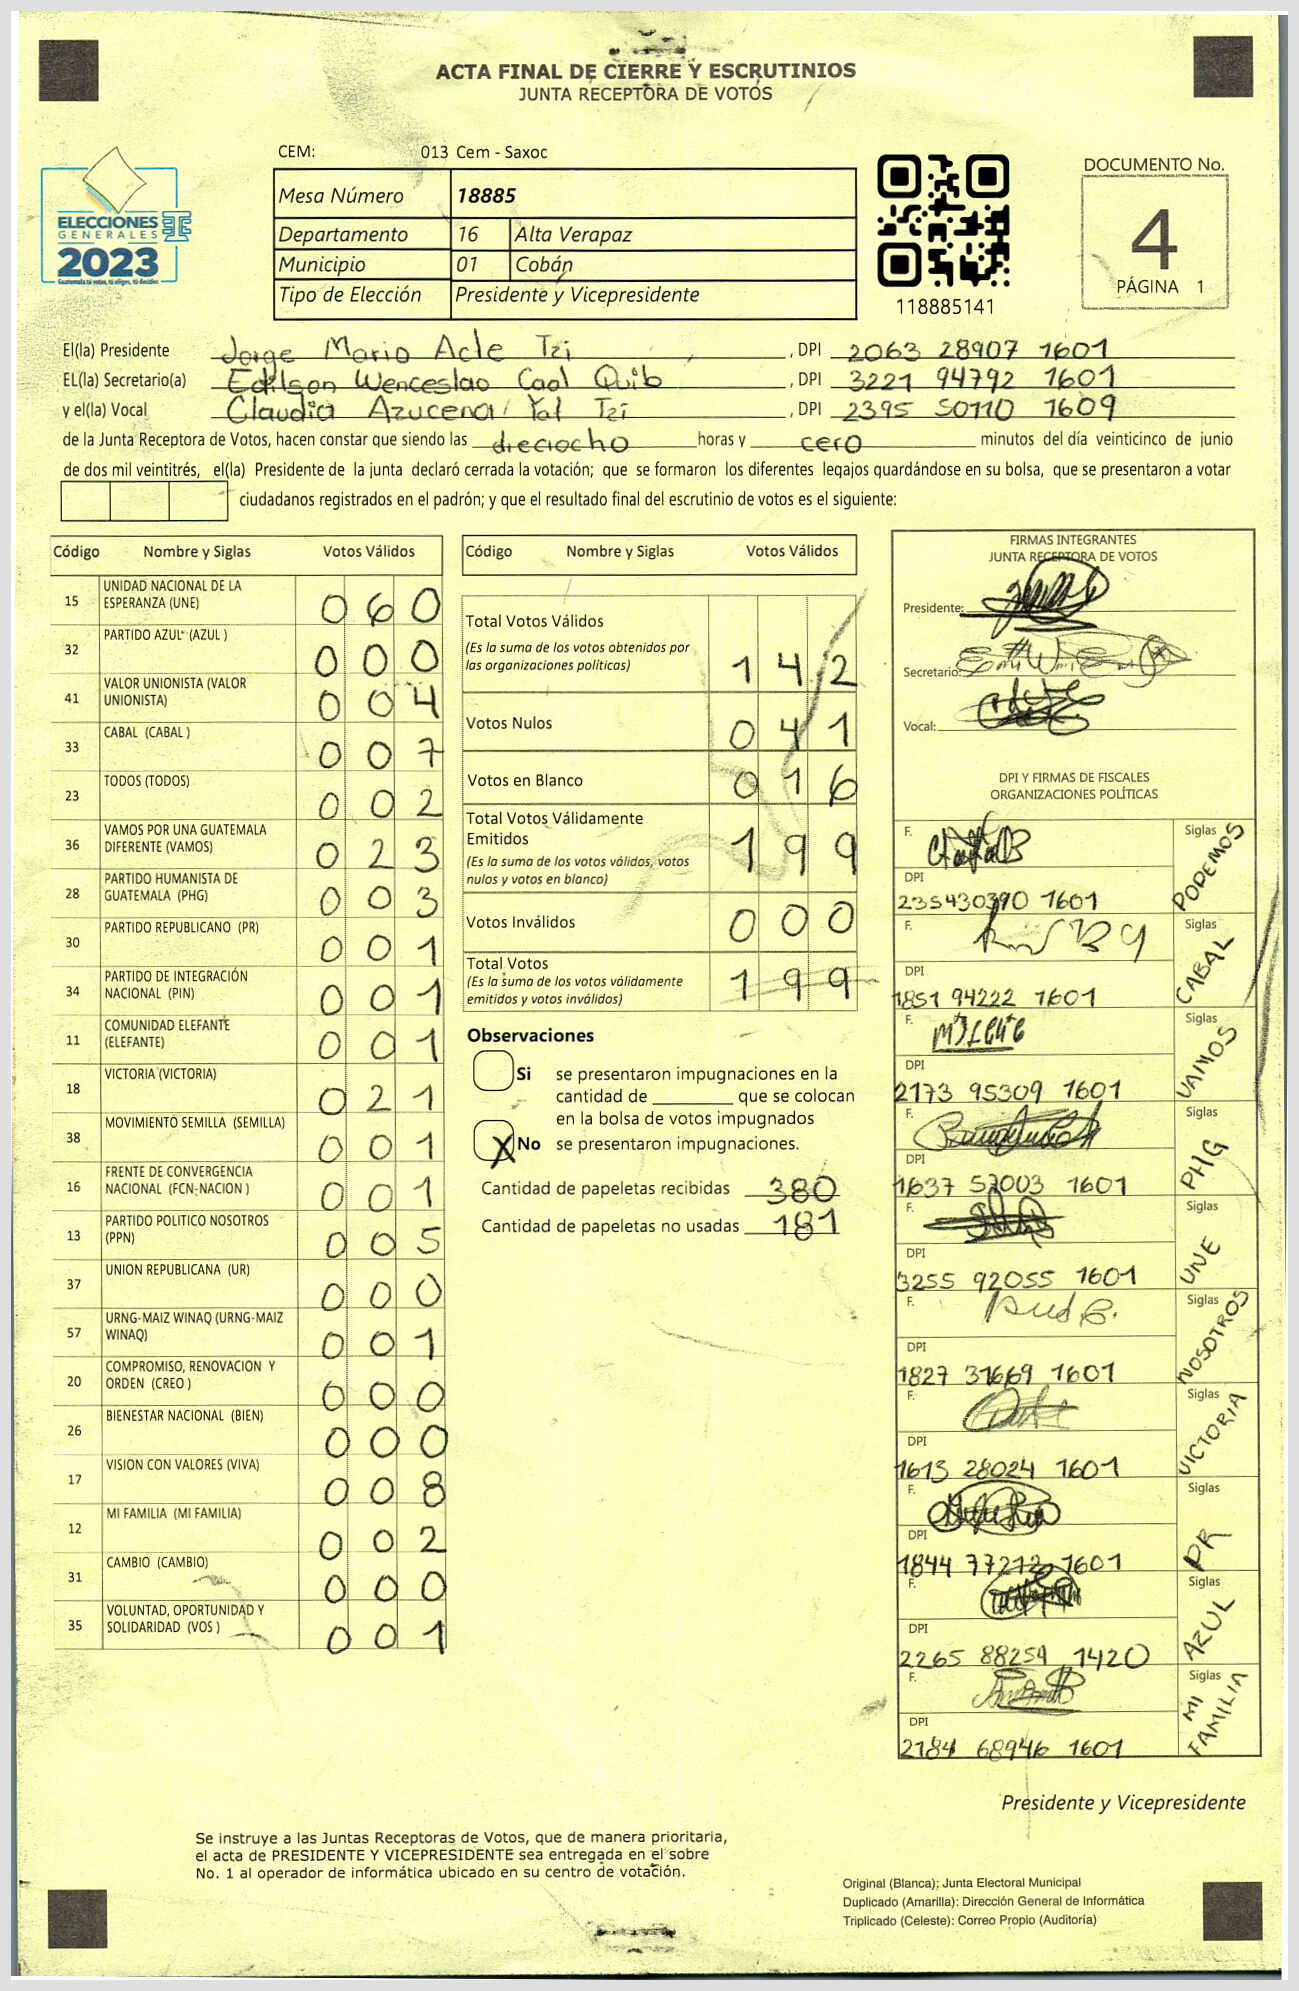 ACTA FINAL DE CIERRE Y ESCRUTINIOS
JUNTA RECEPTORA DE VOTOS
CEM: 013 Cem - Saxoc
Mesa Número 18885
Departamento 16 Alta Verapaz
Municipio 01 Cobán
Tipo de Elección Presidente y Vicepresidente
ELECCIONES
GENERALES
2023
Guatemala tú votas, tú eliges, tú decides
TSE
118885141
DOCUMENTO No.
4
PÁGINA 1
El(la) Presidente Jorge Mario Acle Tzi , DPI 2063 28907 1601
EL(la) Secretario(a) Edilson Wenceslao Caal Quib , DPI 3221 94792 1601
y el(la) Vocal Claudia Azucena Yat Tzi , DPI 2395 50110 1609
de la Junta Receptora de Votos, hacen constar que siendo las dieciocho horas y cero minutos del día veinticinco de junio
de dos mil veintitrés, el(la) Presidente de la junta declaró cerrada la votación; que se formaron los diferentes legajos guardándose en su bolsa, que se presentaron a votar
ciudadanos registrados en el padrón; y que el resultado final del escrutinio de votos es el siguiente:
Código Nombre y Siglas Votos Válidos
15 UNIDAD NACIONAL DE LA ESPERANZA (UNE) 0 6 0
32 PARTIDO AZUL (AZUL ) 0 0 0
41 VALOR UNIONISTA (VALOR UNIONISTA) 0 0 4
33 CABAL (CABAL ) 0 0 7
23 TODOS (TODOS) 0 0 2
36 VAMOS POR UNA GUATEMALA DIFERENTE (VAMOS) 0 2 3
28 PARTIDO HUMANISTA DE GUATEMALA (PHG) 0 0 3
30 PARTIDO REPUBLICANO (PR) 0 0 1
34 PARTIDO DE INTEGRACIÓN NACIONAL (PIN) 0 0 1
11 COMUNIDAD ELEFANTE (ELEFANTE) 0 0 1
18 VICTORIA (VICTORIA) 0 2 1
38 MOVIMIENTO SEMILLA (SEMILLA) 0 0 1
16 FRENTE DE CONVERGENCIA NACIONAL (FCN-NACION ) 0 0 1
13 PARTIDO POLITICO NOSOTROS (PPN) 0 0 5
37 UNION REPUBLICANA (UR) 0 0 0
57 URNG-MAIZ WINAQ (URNG-MAIZ WINAQ) 0 0 1
20 COMPROMISO, RENOVACION Y ORDEN (CREO ) 0 0 0
26 BIENESTAR NACIONAL (BIEN) 0 0 0
17 VISION CON VALORES (VIVA) 0 0 8
12 MI FAMILIA (MI FAMILIA) 0 0 2
31 CAMBIO (CAMBIO) 0 0 0
35 VOLUNTAD, OPORTUNIDAD Y SOLIDARIDAD (VOS ) 0 0 1
Código Nombre y Siglas Votos Válidos
Total Votos Válidos 1 4 2
(Es la suma de los votos obtenidos por
las organizaciones políticas)
Votos Nulos 0 4 1
Votos en Blanco 0 1 6
Total Votos Válidamente
Emitidos 1 9 9
(Es la suma de los votos válidos, votos
nulos y votos en blanco)
Votos Inválidos 0 0 0
Total Votos 1 9 9
(Es la suma de los votos válidamente
emitidos y votos inválidos)
Observaciones
Si se presentaron impugnaciones en la
cantidad de ________ que se colocan
en la bolsa de votos impugnados
X No se presentaron impugnaciones.
Cantidad de papeletas recibidas 380
Cantidad de papeletas no usadas 181
FIRMAS INTEGRANTES
JUNTA RECEPTORA DE VOTOS
Presidente:
Secretario:
Vocal:
DPI Y FIRMAS DE FISCALES
ORGANIZACIONES POLÍTICAS
F. Siglas PODEMOS
DPI
235430390 1601
F. Siglas CABAL
DPI
1851 94222 1601
F. Siglas VAMOS
DPI
2173 95309 1601
F. Siglas PHG
DPI
1637 52003 1601
F. Siglas UNE
DPI
3255 92055 1601
F. Siglas NOSOTROS
DPI
1827 31669 1601
F. Siglas VICTORIA
DPI
1613 28024 1601
F. Siglas PR
DPI
1844 77212 1601
F. Siglas AZUL
DPI
2265 88259 1420
F. Siglas MI FAMILIA
DPI
2184 68946 1601
Presidente y Vicepresidente
Se instruye a las Juntas Receptoras de Votos, que de manera prioritaria,
el acta de PRESIDENTE Y VICEPRESIDENTE sea entregada en el sobre
No. 1 al operador de informática ubicado en su centro de votación.
Original (Blanca); Junta Electoral Municipal
Duplicado (Amarilla): Dirección General de Informática
Triplicado (Celeste): Correo Propio (Auditoría)